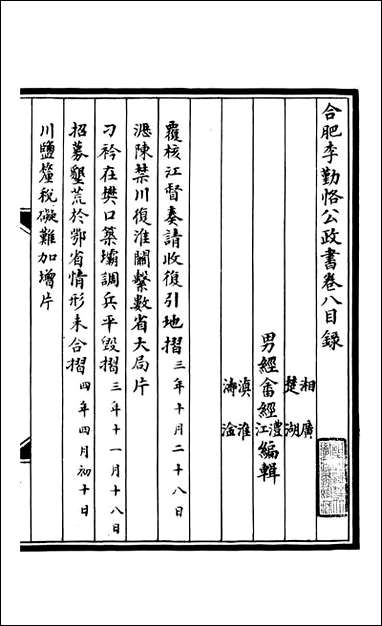 合肥李勤恪公政書卷八目録
湘　廣
楚　湖
男經畬經澧江編輯
滇　淮
澥　淦
覆核江督奏請收復引地摺　三年十月二十八日
瀝陳禁川復淮關繫數省大局片
刁衿在樊口築壩調兵平毀摺　三年十一月十八日
招募墾荒於鄂省情形未合摺　四年四月初十日
川鹽釐稅礙難加增片